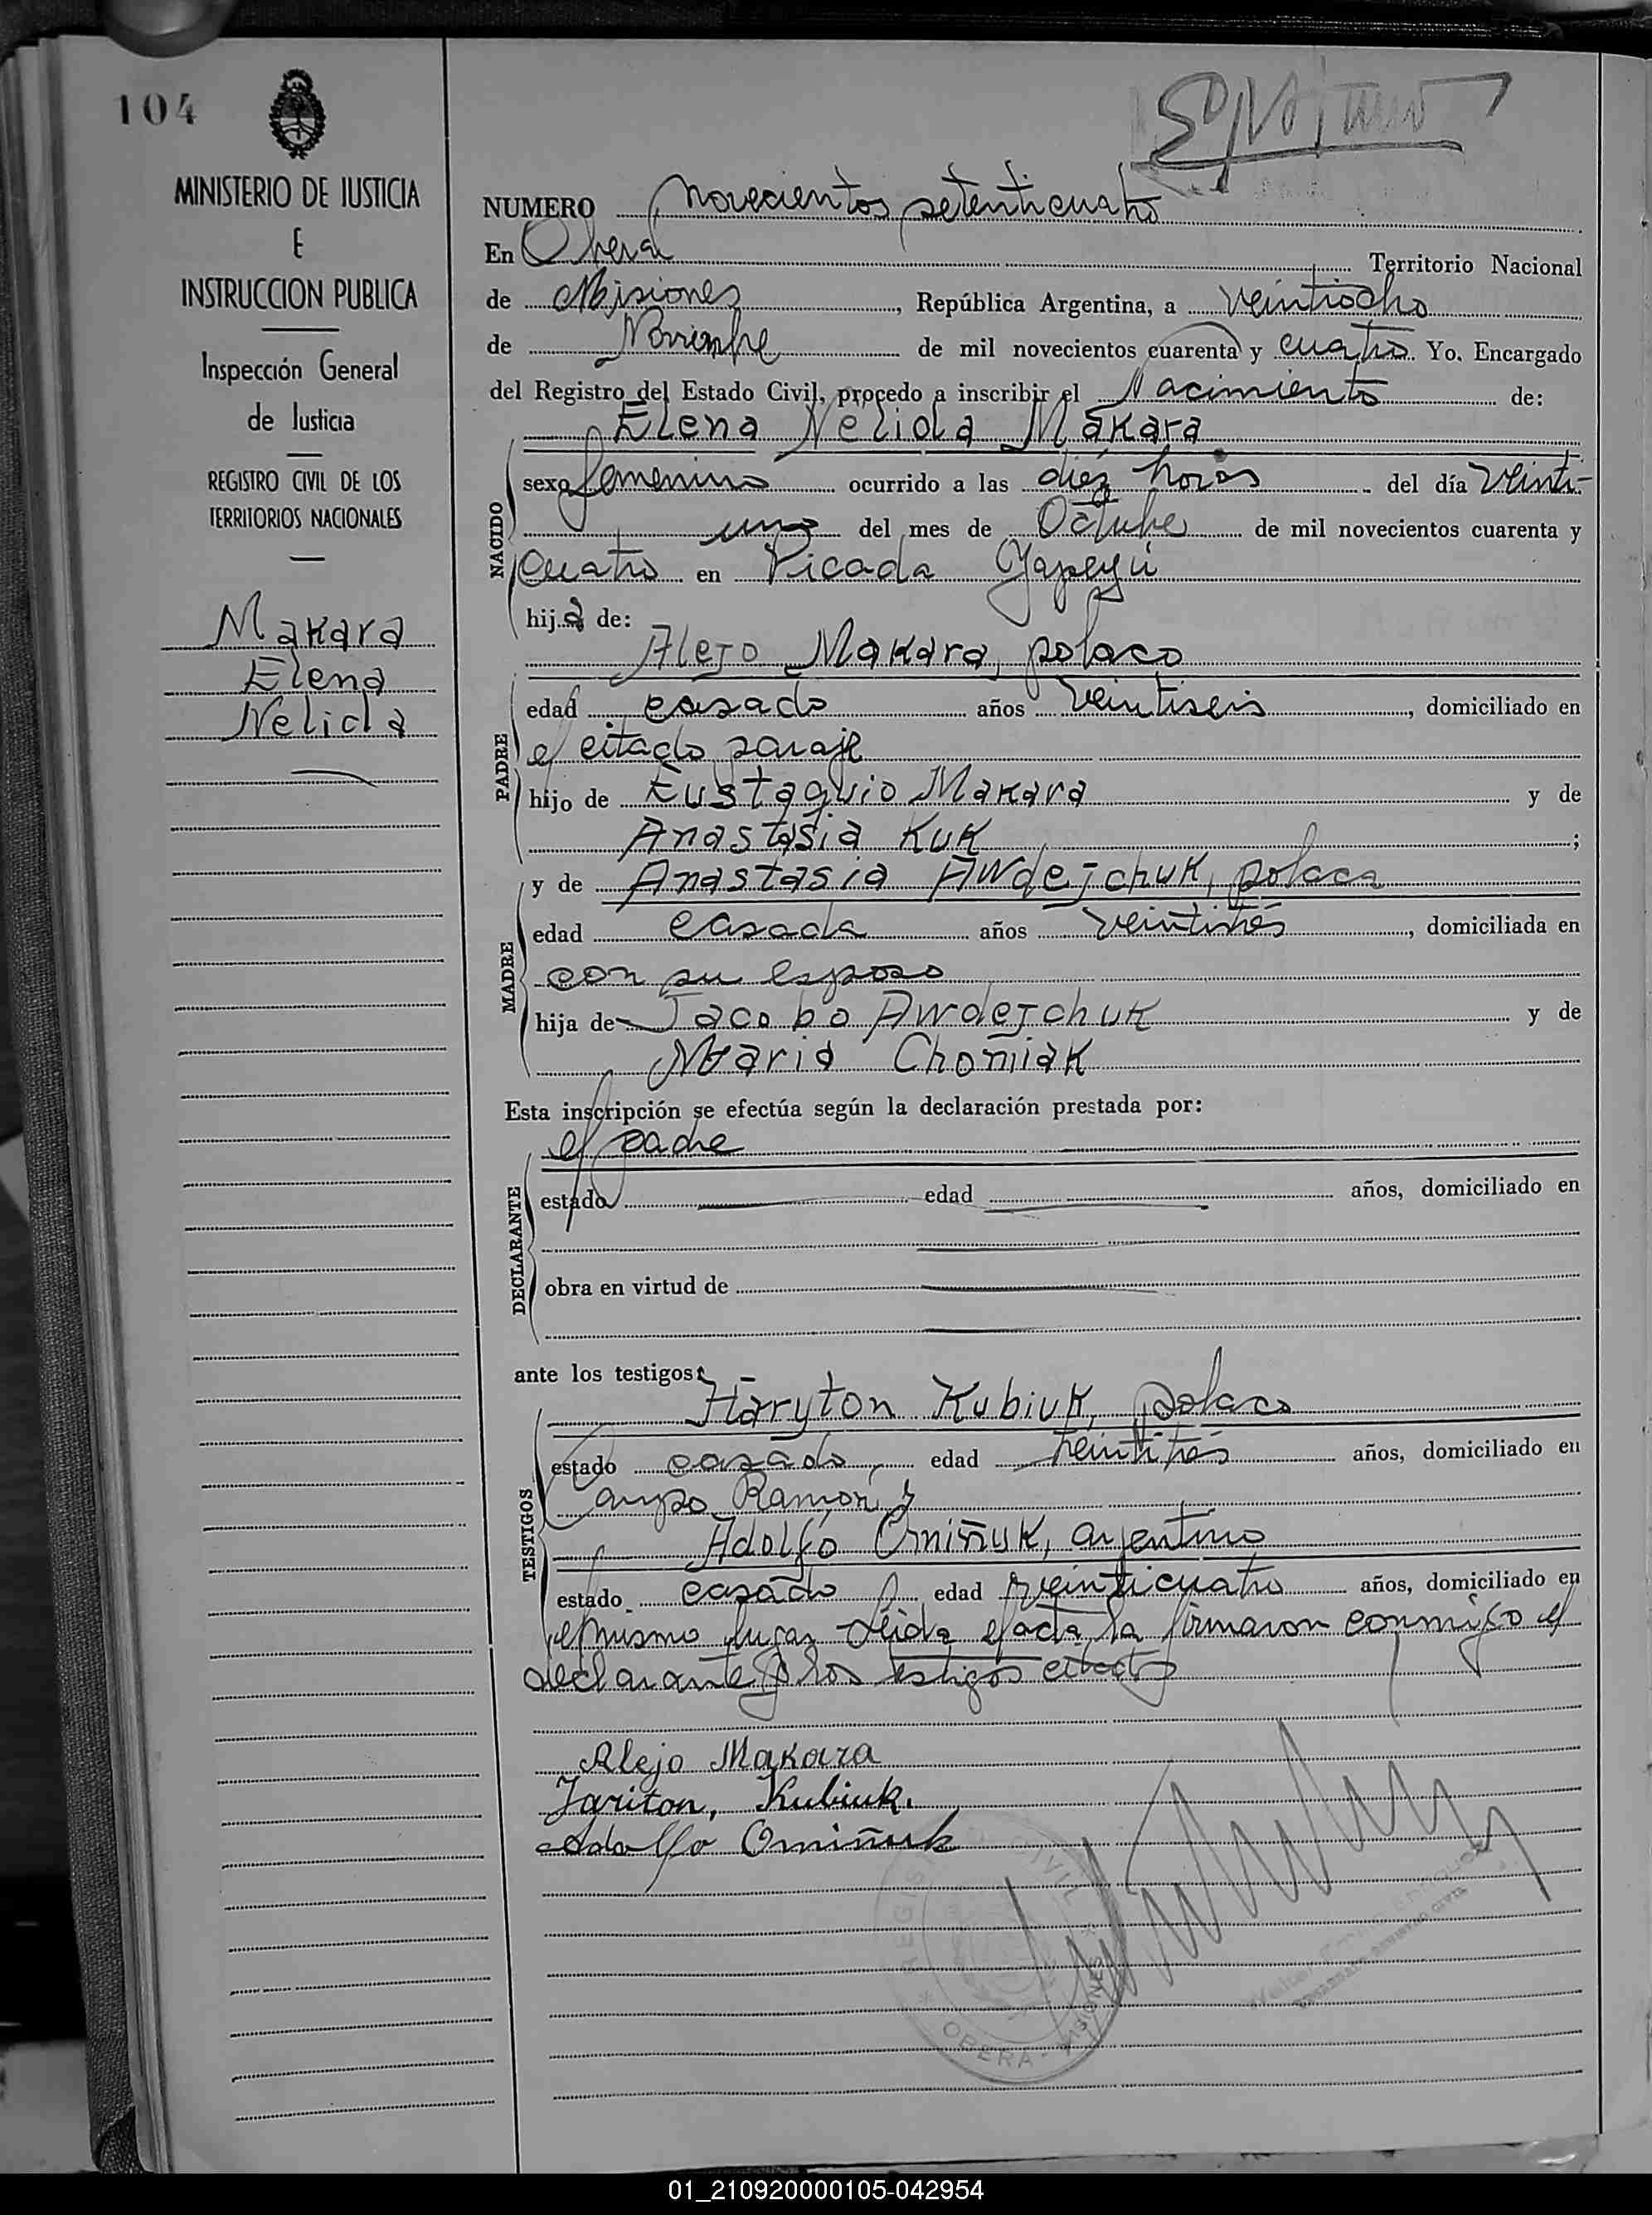 104
MINISTERIO DE JUSTICIA
E
INSTRUCCION PUBLICA
Inspección General
de Justicia
REGISTRO CIVIL DE LOS
TERRITORIOS NACIONALES
Makara
Elena
Nelida
NUMERO novecientos setenticuatro
En Obera Territorio Nacional
de Misiones, República Argentina, a veintiocho
de Noviembre de mil novecientos cuarenta y cuatro. Yo, Encargado
del Registro del Estado Civil, procedo a inscribir el Nacimiento de:
Elena Nelida Makara
NACIDO
sexo femenino ocurrido a las diez horas del día veinti-
uno del mes de Octubre de mil novecientos cuarenta y
cuatro en Picada Yapeyú
hija de:
Alejo Makara, polaco
PADRE
edad casado años veintiseis, domiciliado en
el citado paraje
hijo de Eustaquio Makara y de
Anastasia Kuk;
y de Anastasia Awdejchuk, polaca
MADRE
edad casada años veintitrés, domiciliada en
con su esposo
hija de Jacobo Awdejchuk y de
Maria Chomiak
Esta inscripción se efectúa según la declaración prestada por:
el padre
DECLARANTE
estado edad años, domiciliado en
obra en virtud de
ante los testigos:
Haryton Kubiuk, polaco
TESTIGOS
estado casado, edad treintitrés años, domiciliado en
Campo Ramón y
Adolfo Omiñuk, argentino
estado casado edad veinticuatro años, domiciliado en
el mismo lugar Leida el acta, la firmaron conmigo el
declarante y los testigos citados
Alejo Makara
Jariton, Kubiuk.
Adolfo Omiñuk
REGISTRO CIVIL
OBERA - MISIONES
ENCARGADO REGISTRO CIVIL
01_210920000105-042954